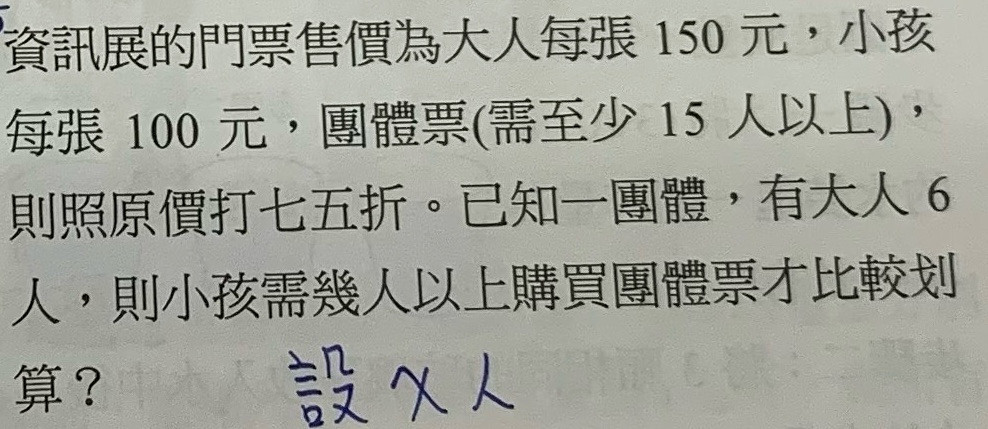 資訊展的門票售價為大人每張 150 元，小孩
每張 100 元，團體票(需至少 15 人以上)，
則照原價打七五折。已知一團體，有大人 6
人，則小孩需幾人以上購買團體票才比較划
算？ 設 X 人